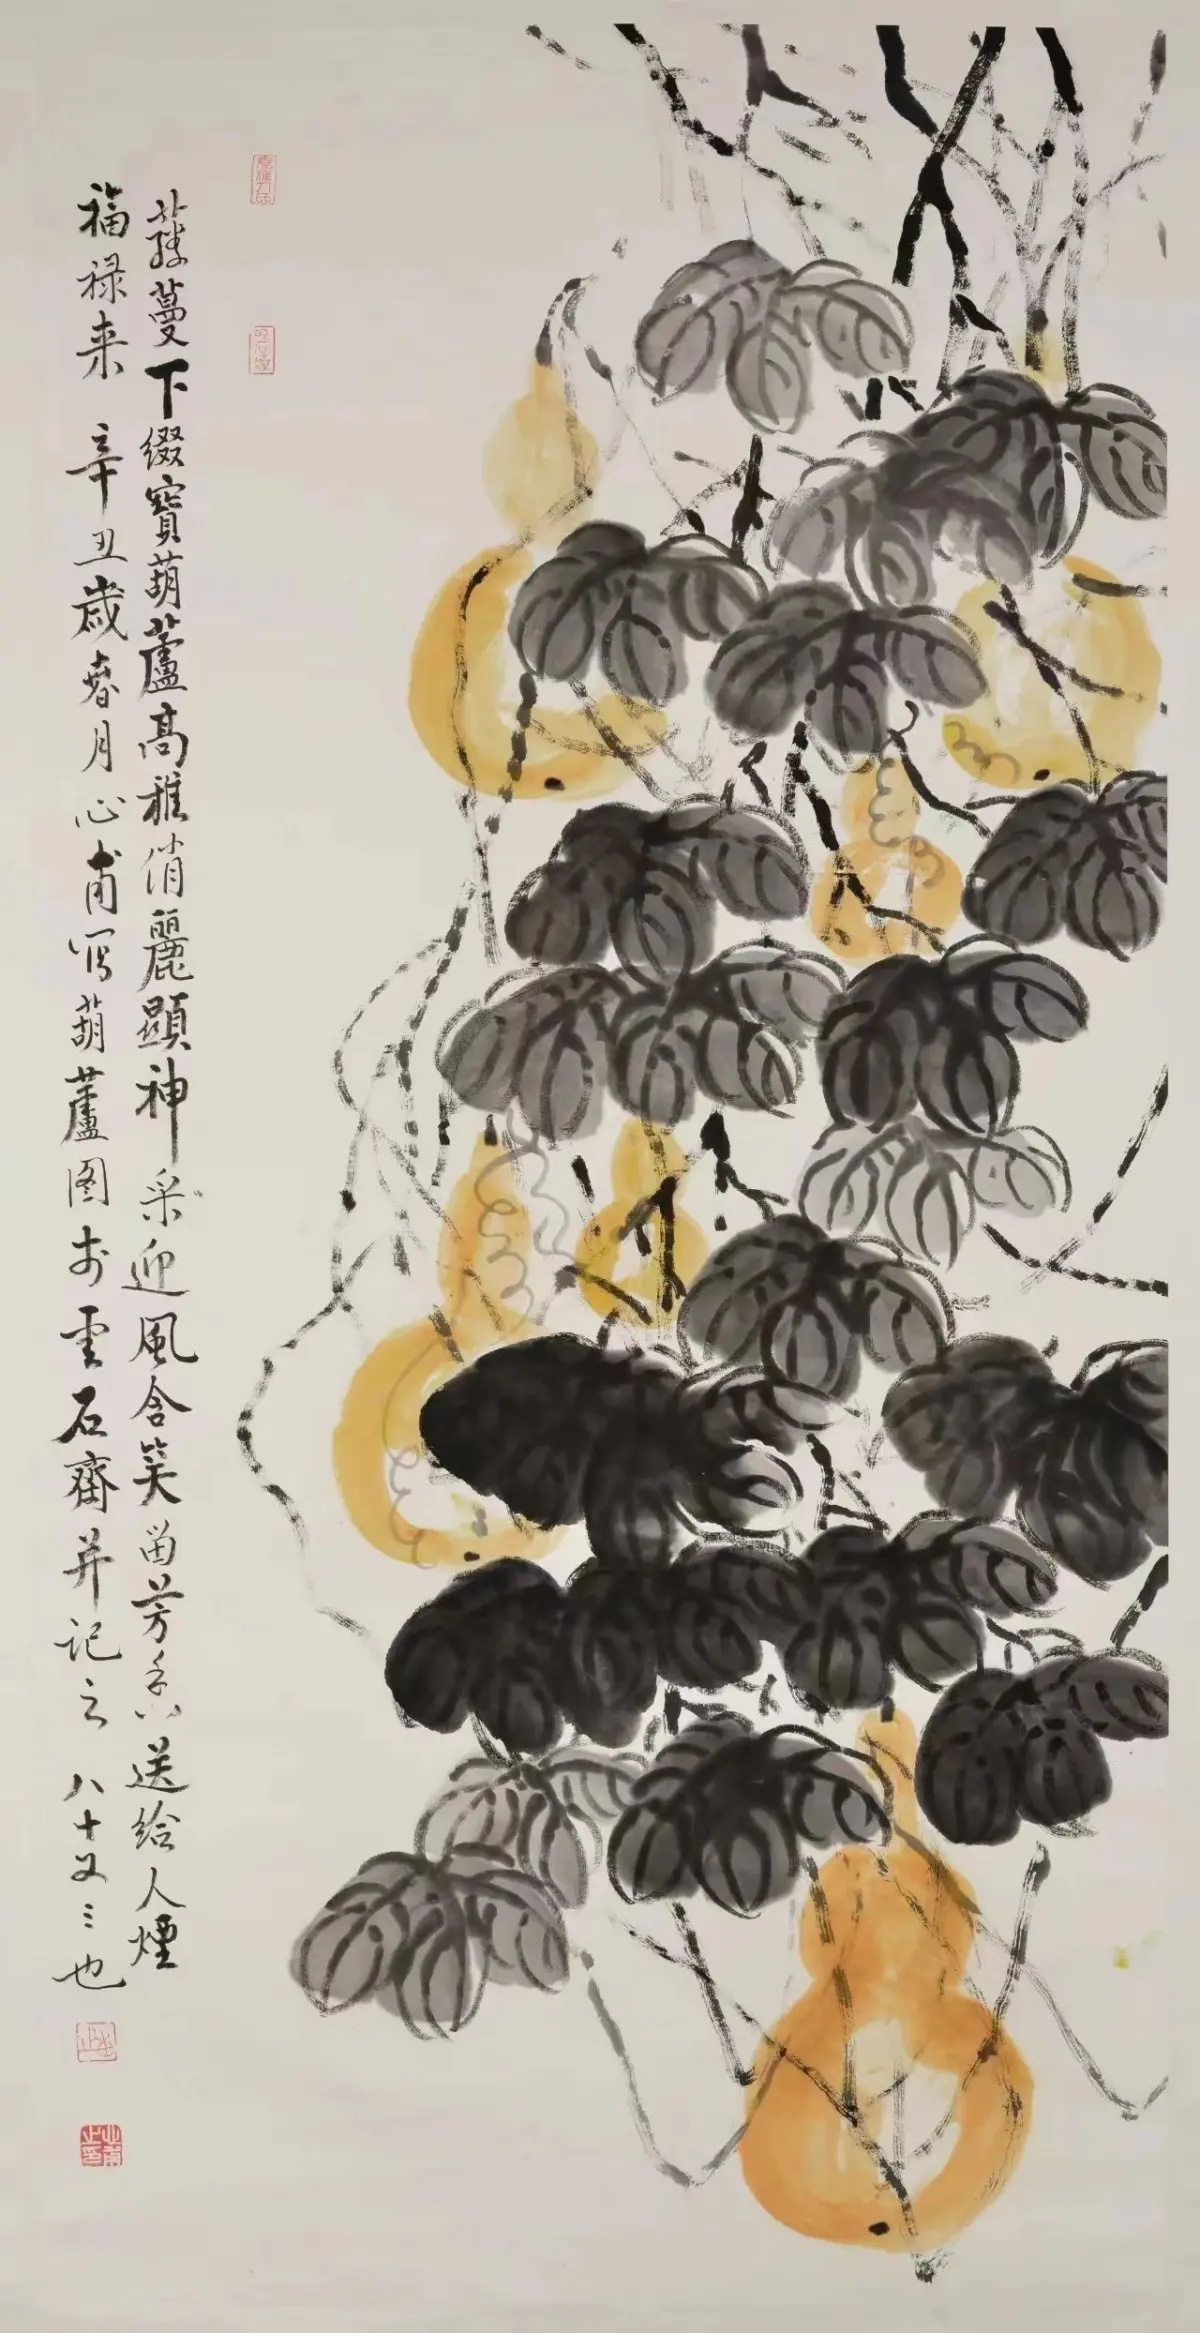 藤蔓下缀寳葫蘆高雅俏麗顯神采迎風含笑留芳香送给人煙
福禄来 辛丑歲春月心甫写葫蘆图於雲石齋并记之 八十又三也